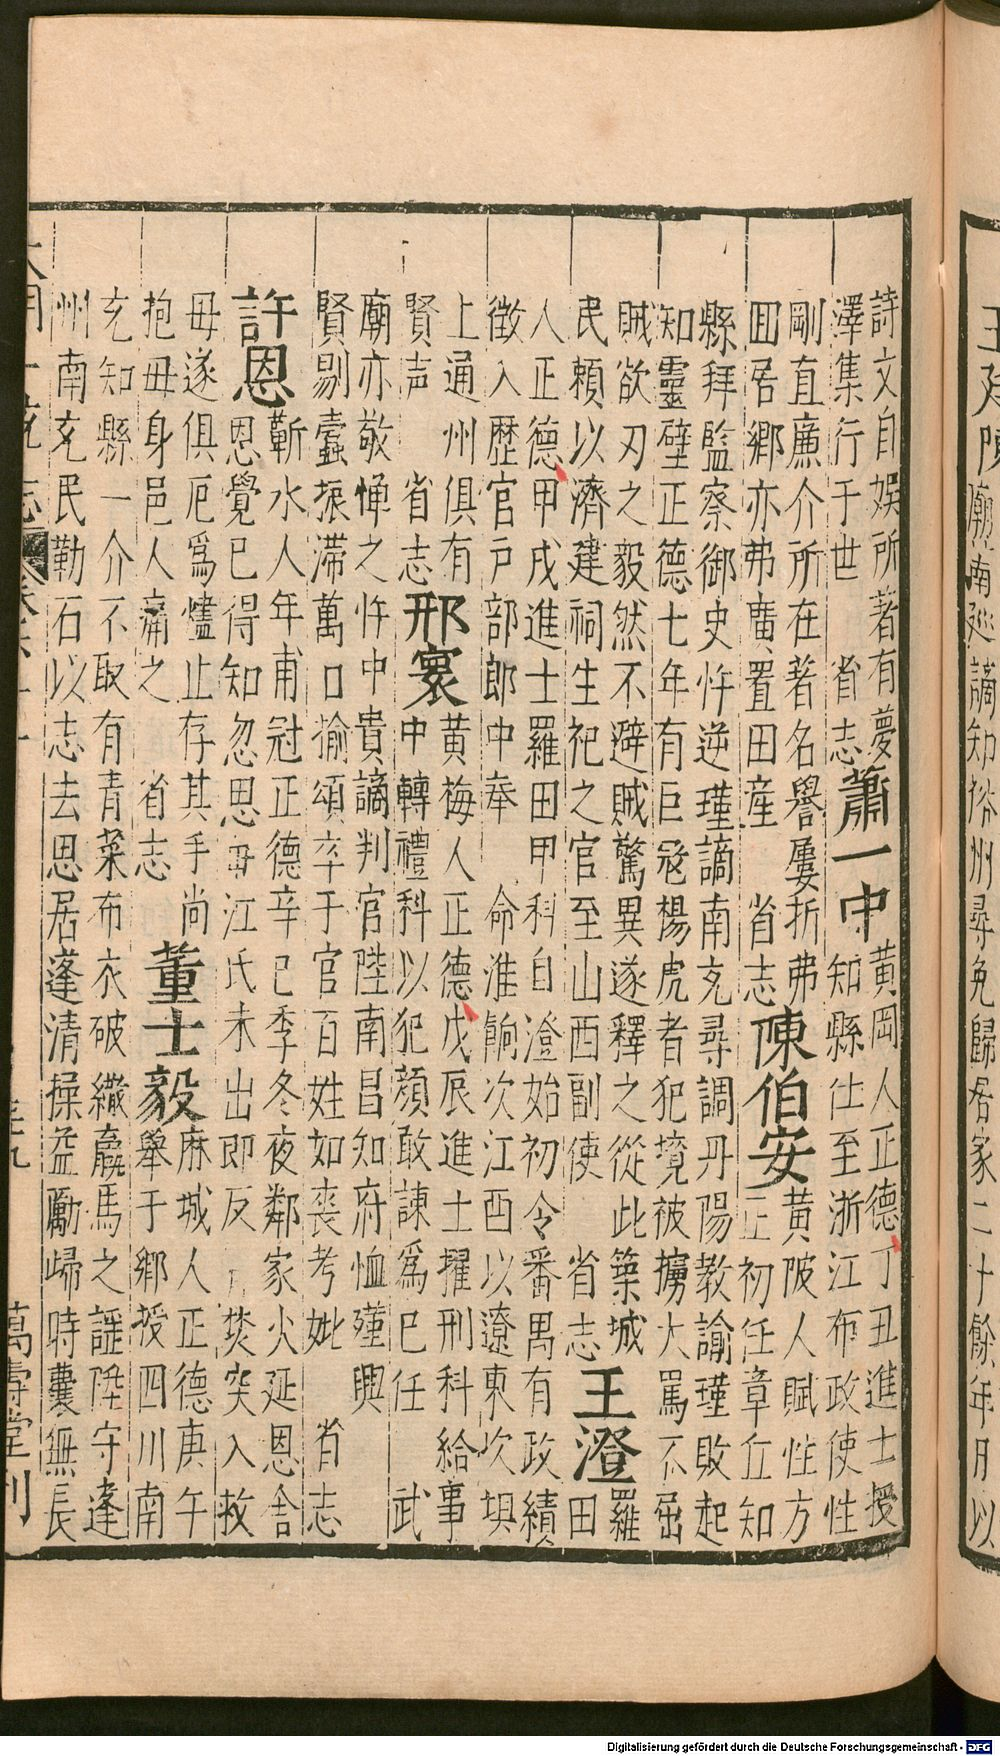 王廷陳
廟南廵謫知裕州尋免歸居家二十餘年日以
詩文自娯所著有夢
澤集行于世 省志
蕭一中
黃岡人正德丁丑進士授
知縣仕至浙江布政使性
剛直廉介所在著名譽屢折弗
囬居鄉亦弗廣置田産 省志
陳伯安
黃陂人賦性方
正初任章丘知
縣拜監察御史忤逆瑾謫南充尋調丹陽教諭瑾敗起
知靈壁正德七年有巨冦楊虎者犯境被擄大罵不屈
賊欲刃之毅然不避賊驚異遂釋之從此築城
民頼以濟建祠生祀之官至山西副使 省志
王澄
羅
田
人正德甲戌進士羅田甲科自 澄始初令番禺有政績
徵入歷官戶部郎中奉 命淮餉次江西以遼東坎垻
上通州俱有
賢声 省志
邢寰
黃梅人正德戊辰進士擢刑科給事
中轉禮科以犯顔敢諫爲已任 武
廟亦敬憚之忤中貴謫判官陞南昌知府恤殣興
賢剔蠹振滯萬口揄頌卒于官百姓如喪考妣 省志
許恩
蘄水人年甫冠正德辛巳季冬夜鄰家火延恩舍
恩覺已得知忽思母江氏未出即反 焚突入救
毋遂俱厄爲燼止存其手尚
抱毋身邑人痛之 省志
董士毅
麻城人正德庚午
舉于鄉授四川南
充知縣一介不取有青菜布衣破繖羸馬之謡陞守蓬
州南充民勒石以志去思居蓬清操益勵歸時囊無長
大明一統志
萬壽堂刊
Digitalisierung gefördert durch die Deutsche Forschungsgemeinschaft - DFG